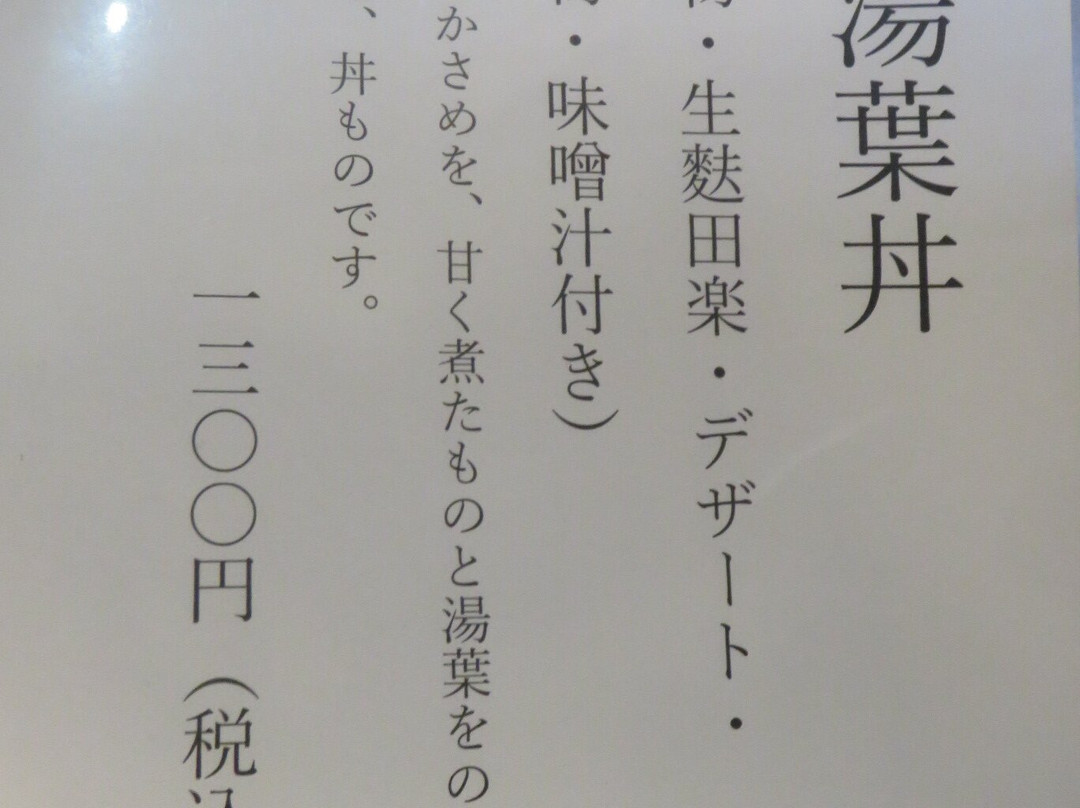 湯葉丼
・生麩田楽・デザート・
・味噌汁付き）
かさめを、甘く煮たものと湯葉をの
、丼ものです。
一三〇〇円（税込